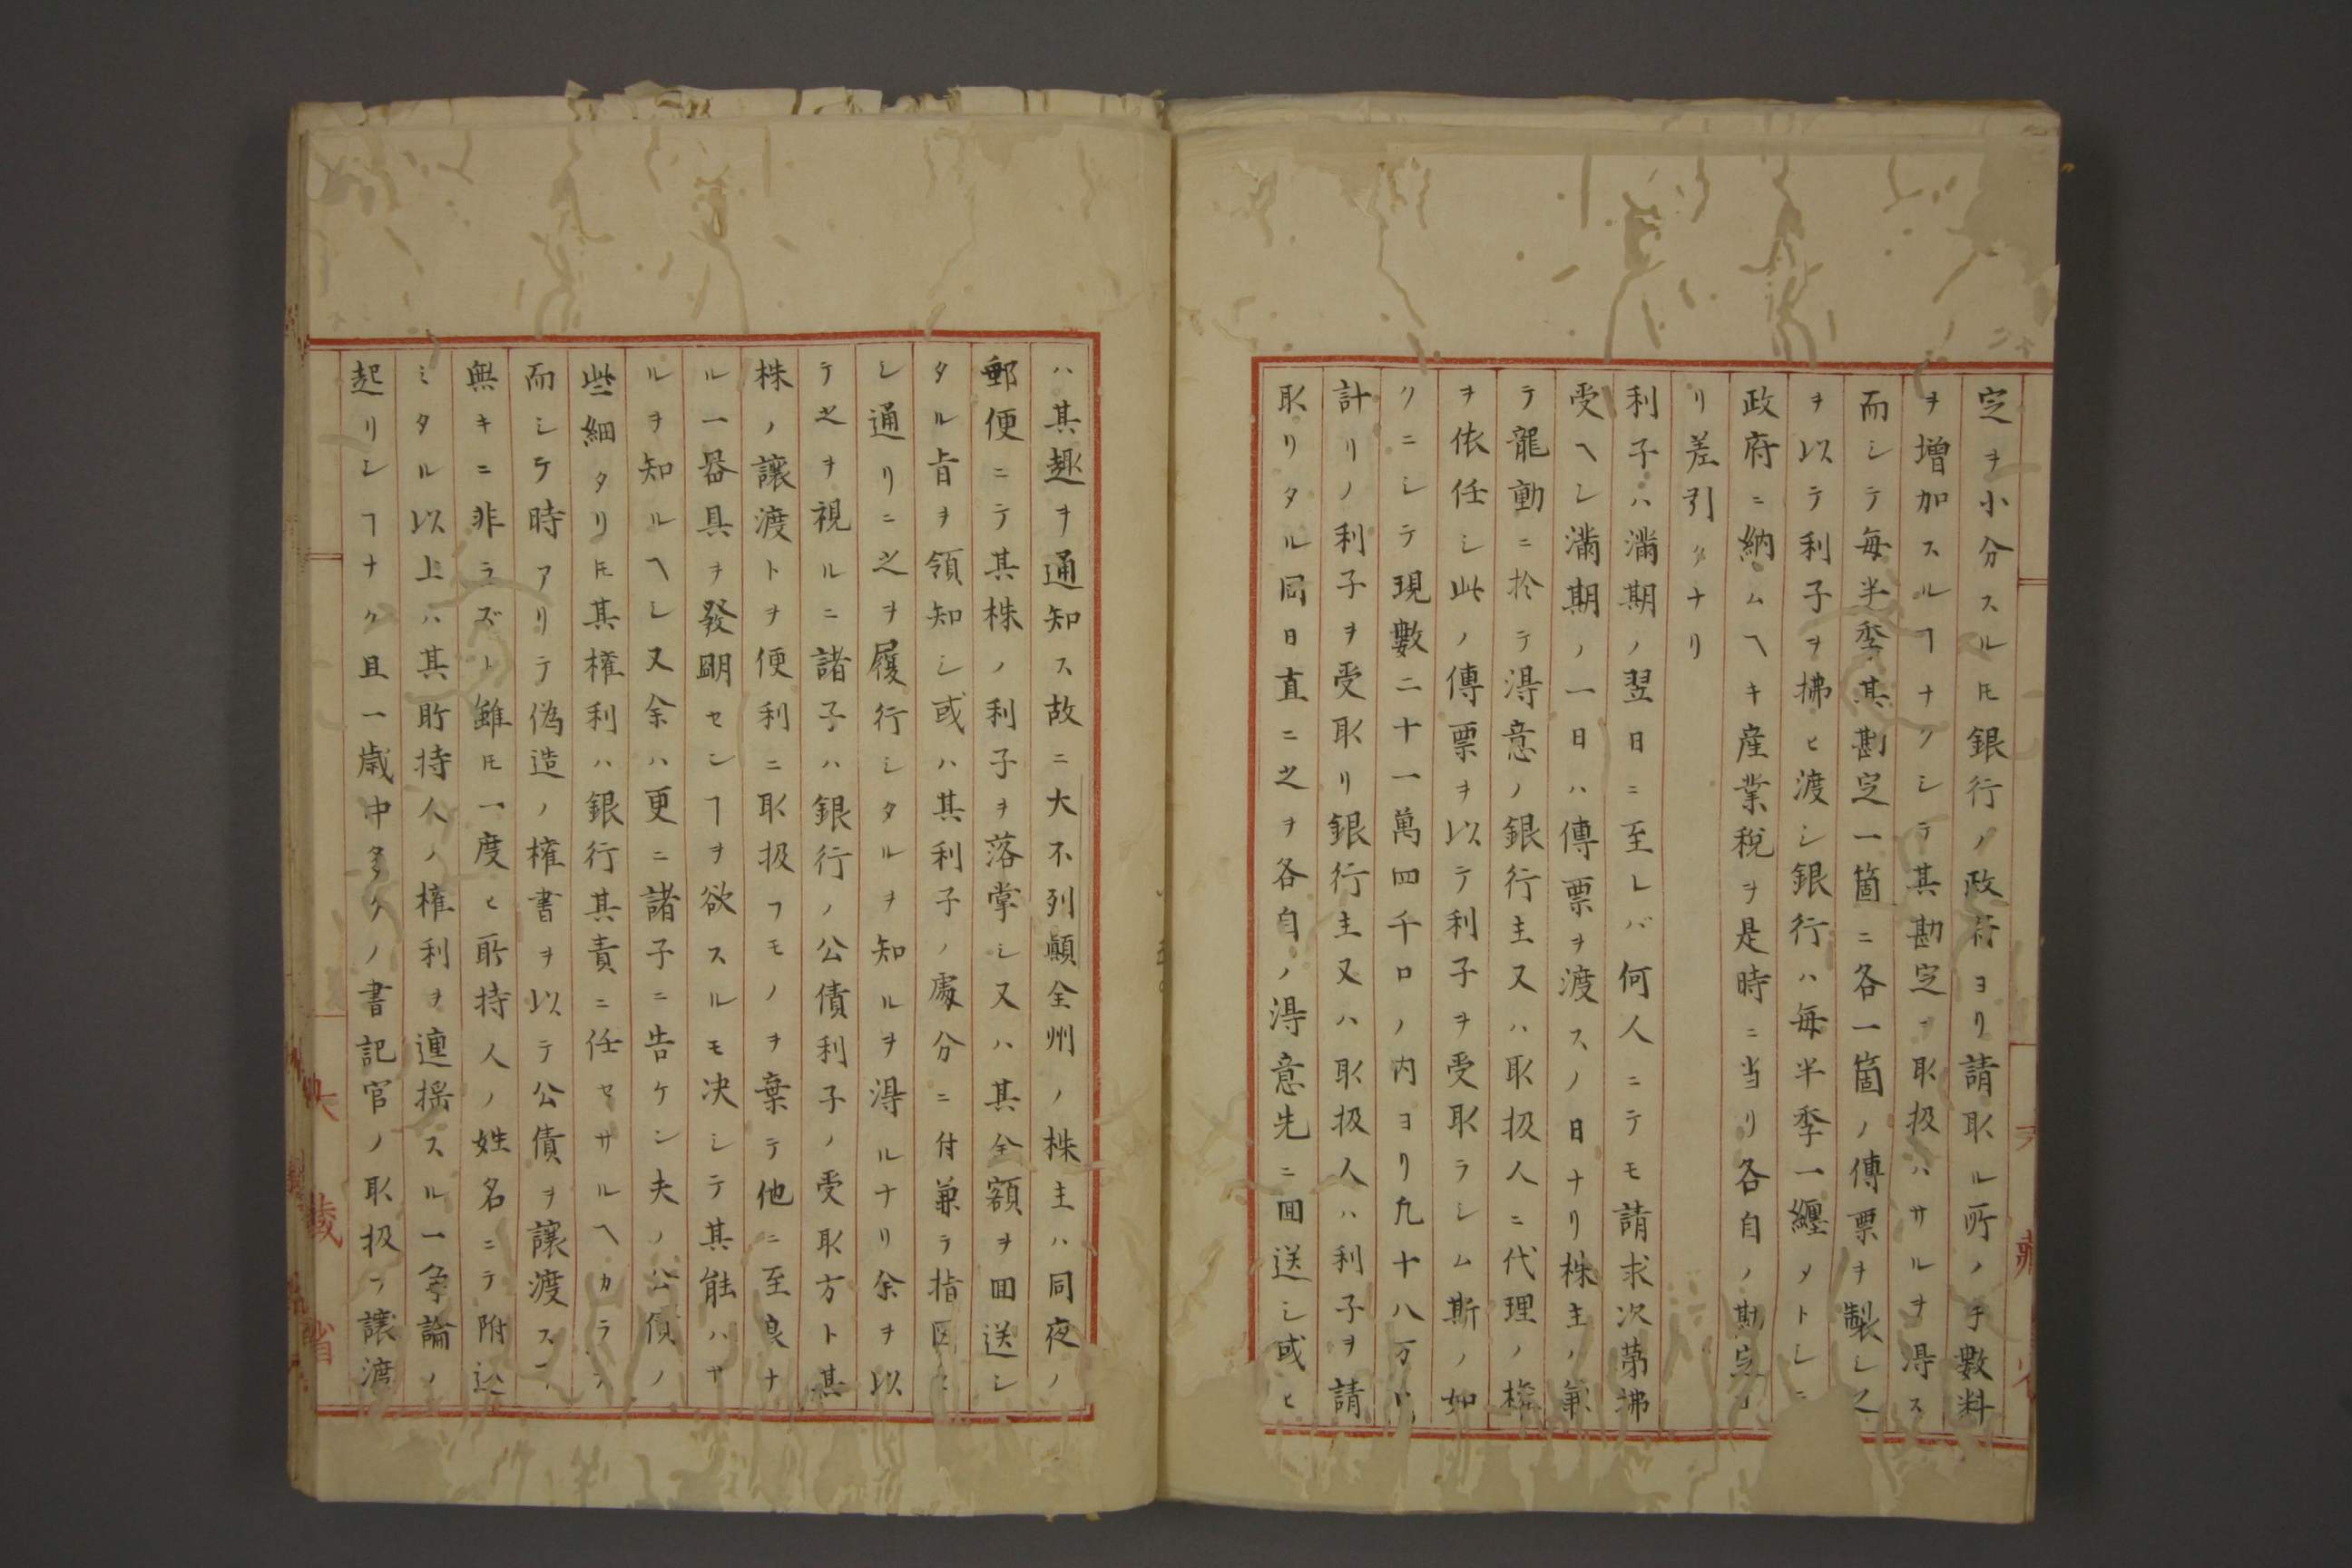 定ヲ小分スルㇳモ銀行ノ政府ヨリ請取ル所ノ手數料
ヲ増加スルヿナクシテ其勘定ヲ取扱ハサルヲ得ス
而シテ毎半季其勘定一箇ニ各一箇ノ傳票ヲ製シ之
ヲ以テ利子ヲ拂ヒ渡シ銀行ハ毎半季一纒メトシニ
政府ニ納ムヘキ産業税ヲ是時ニ当リ各自ノ勘定ヨ
リ差引クナリ
利子ハ満期ノ翌日ニ至レバ何人ニテモ請求次第拂
受ヘシ満期ノ一日ハ傳票ヲ渡スノ日ナリ株主ノ兼
テ龍動ニ於テ得意ノ銀行主又ハ取扱人ニ代理ノ權
ヲ依任シ此ノ傳票ヲ以テ利子ヲ受取ラシム斯ノ如
クニシテ現數二十一萬四千口ノ内ヨリ九十八万口
計リノ利子ヲ受取リ銀行主又ハ取扱人ハ利子ヲ請
取リタル同日直ニ之ヲ各自ノ得意先ニ囬送シ或ヒ
ハ其趣ヲ通知ス故ニ大不列顛全州ノ株主ハ同夜ノ
郵便ニテ其株ノ利子ヲ落掌シ又ハ其全額ヲ囬送シ
タル旨ヲ領知シ或ハ其利子ノ處分ニ付兼テ指図
シ通リニ之ヲ履行シタルヲ知ルヲ得ルナリ余ヲ以
テ之ヲ視ルニ諸子ハ銀行ノ公債利子ノ受取方ト其
株ノ讓渡トヲ便利ニ取扱フモノヲ棄テ他ニ至良ナ
ル一器具ヲ發明セシヿヲ欲スルモ决シテ其能ハサ
ルヲ知ルヘシ又余ハ更ニ諸子ニ告ケン夫ノ公債ノ
些細タリㇳモ其權利ハ銀行其責ニ任セサルヘカラス
而シテ時アリテ偽造ノ權書ヲ以テ公債ヲ讓渡ス
無キニ非ラズト雖ㇳモ一度ヒ所持人ノ姓名ニテ附込
ミタル以上ハ其所持人ノ權利ヲ連揺スル一爭論ノ
起リシヿナク且一歳中多クノ書記官ノ取扱フ讓渡